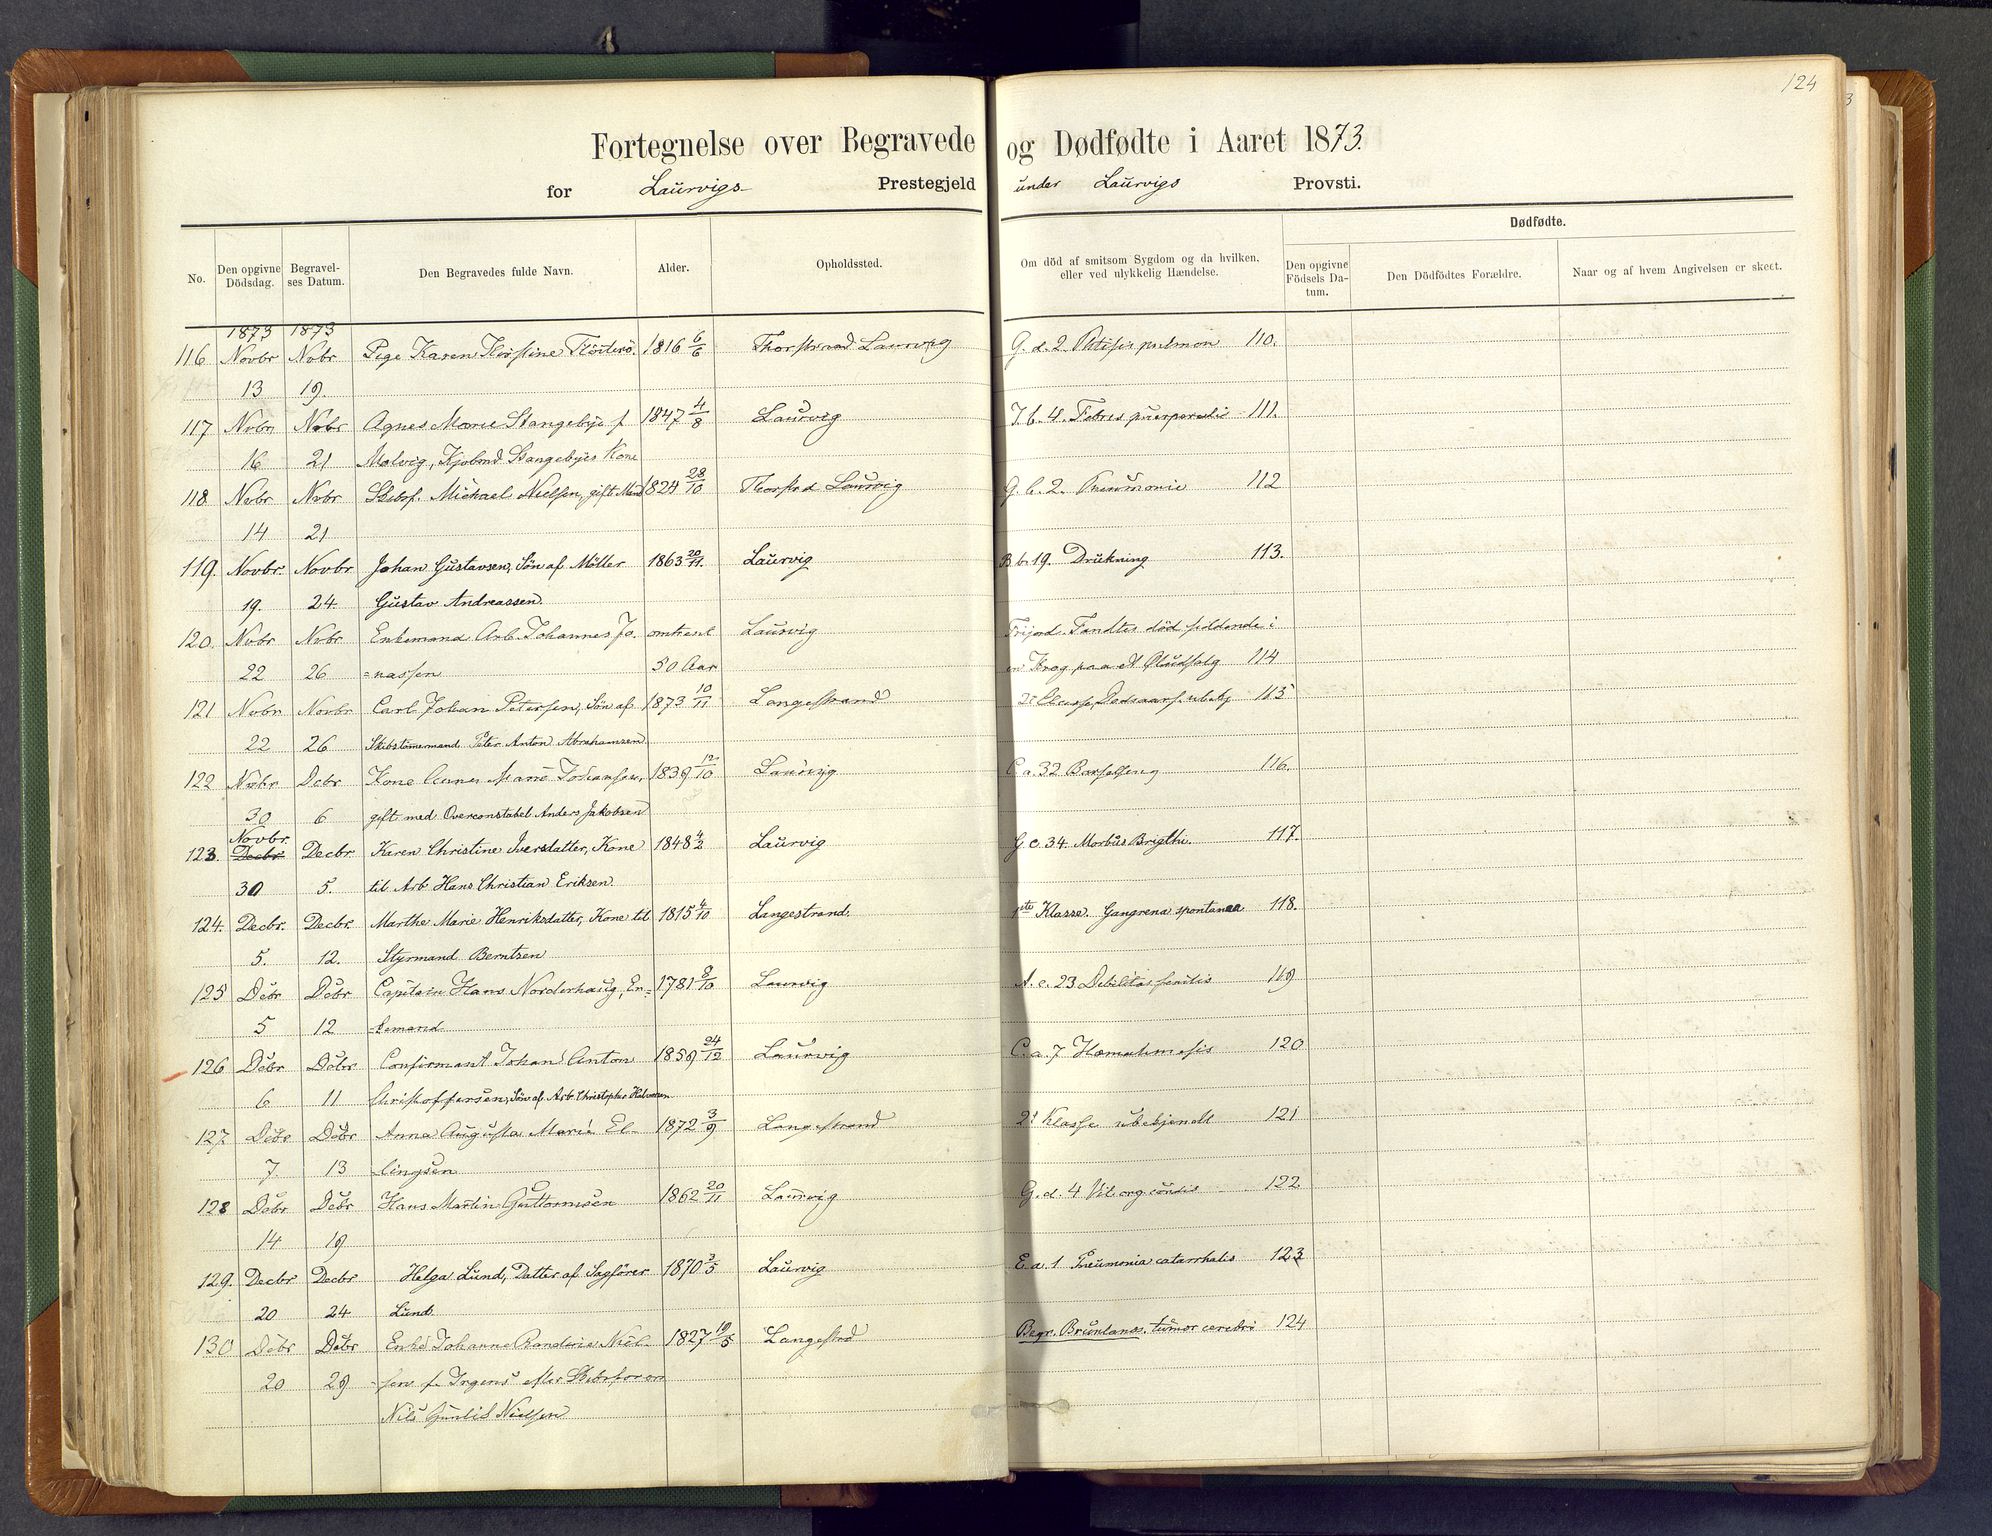 124
Fortegnelse over Begravede og Dødfødte i Aaret 1873.
for Laurvigs Prestegjeld under Laurvigs Provsti.
No. Den opgivne Dödsdag. Begravelses Datum. Den Begravedes fulde Navn. Alder. Opholdssted. Om död af smitsom Sygdom og da hvilken, eller ved ulykkelig Hændelse. Dødfødte. Den opgivne Födsels Datum. Den Dödfödtes Forældre. Naar og af hvem Angivelsen er skeet.
1873 1873
116. Novbr Nvbr Pige Karen Kirstine 1816 6/6 Thorstrand Laurvig G. d. 2. Phtisis pulmon 110.
13 19.
117 Nvbr Nvbr Agnes Marie Stangebye f 1847 4/8 Laurvig J. b. 4. Febris puerperalis 111.
16 21 Malvig, Kjøbmd Stangebyes Kone
118 Nvbr Nvbr Skibsf. Michael Nielsen, gift Mand 1824 28/10 Thorstrd Laurvig G. b. 2. Pneumonie 112
14 21
119. Novbr. Novbr Johan Gustavsen, Sön af Möller 1863 20/11. Laurvig B b. 19. Drukning 113.
19. 24. Gustav Andreassen.
120. Nvbr Nvbr Enkemand Arb. Johannes Jo= omtrent Laurvig Frijord. Fandtes död siddende i
22 26 =nassen 50 Aar en Krog paa et Øludsalg 114
121 Nvbr Novbr Carl Johan Petersen, Sön af 1873 10/11 Langestrand 2 Classe, Dødsaars. ubekj 115
22 26 Skibstömmermand Peter Anton Abrahamsen
122 Nvbr Dcbr Kone Anne Marie Johansen, 1839 12/10 Laurvig C. a. 32 Barselseng 116.
30 6 gift med Overconstabel Anders Jakobsen
Novbr.
123. Decbr Decbr. Karen Christine Iversdatter, Kone 1848 4/2 Laurvig G c. 34. Morbus Brigthi. 117.
30 5. til Arb Hans Christian Eriksen
124. Decbr. Decbr. Marthe Marie Henriksdatter, Kone til 1815 4/10 Langestrand. 1ste Klasse. Gangrena spontanea 118.
5. 12. Styrmand Berntsen
125 Dcbr Dcbr Capitain Hans Norderhaug, En= 1781 8/10 Laurvig A. c. 23 Debilitas senilis 119
5 12 =kemand
126 Dcbr Dcbr Confirmant Johan Anton 1859 24/12 Laurvig C. a. 7 Hæmatemesis 120
6 11 Christoffersen, Sön af Arb. Christopher Halvorsen
127. Dcbr Dcbr Anna Augusta Marie El- 1872 3/9 Langestrand 2 Klasse ubekjendt 121
7. 13 lingsen
128 Dcbr Dcbr Hans Martin Guttormsen 1862 20/11 Laurvig G. d. 4 Vit. org. cordis 122
14 19
129. Decbr Decbr Helga Lund, Datter af Sagförer 1870 3/5 Laurvig E. a. 1 Pneumonia catarrhalis 123
20 24 Lund.
130 Dcbr Dcbr Enke Johanne Randine Niel- 1827 19/5 Langestrd Begr. Brunlanæs. tumor cerebri 124
20 29 =sen f. efter Skibsförer
Nils Nielsen